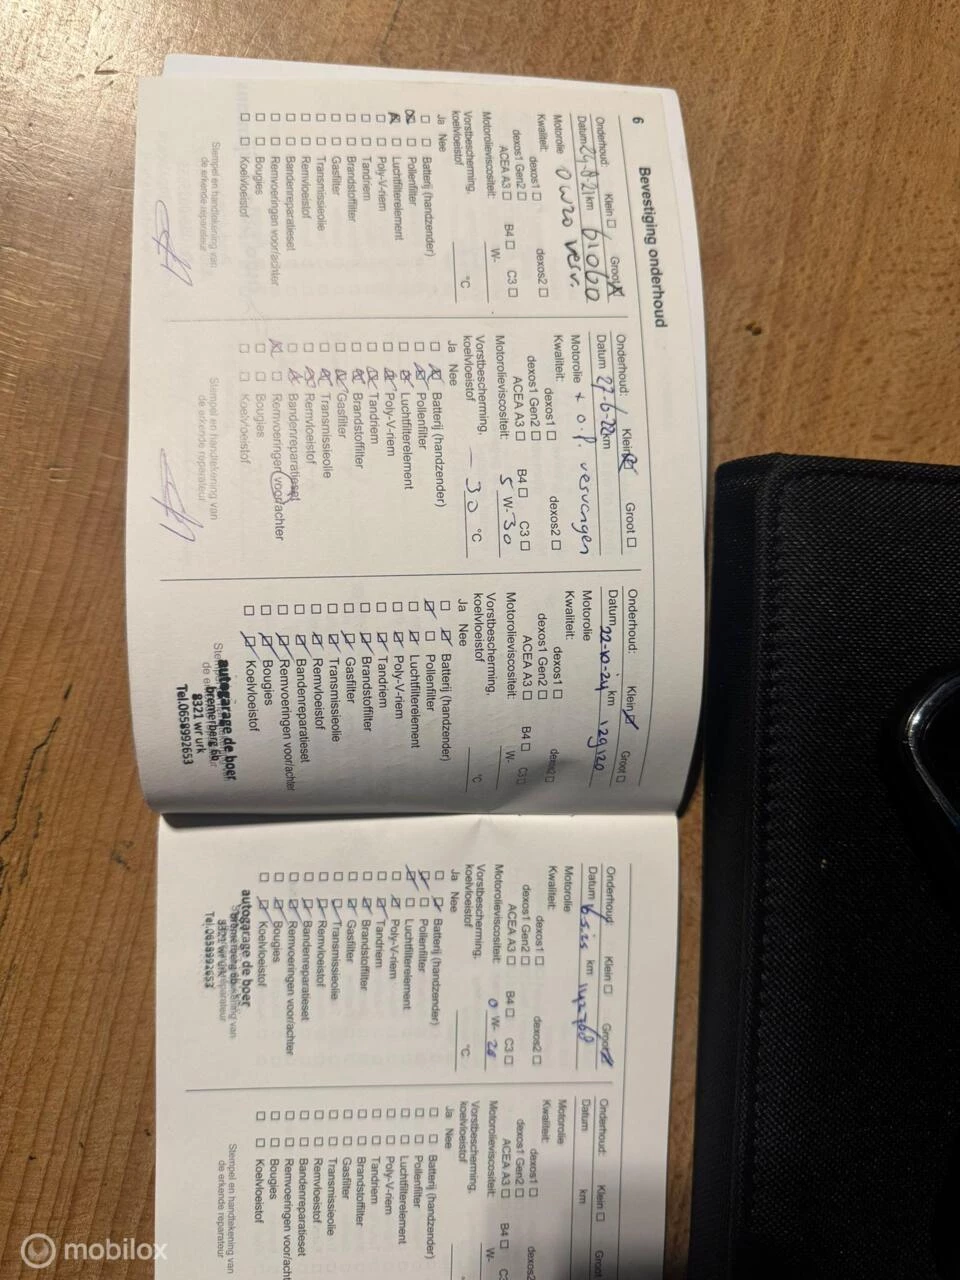 6
Bevestiging onderhoud
Onderhoud: Klein ☐ Groot ☒
Datum 24-8-21 km 61060
Motorolie 0w20 verv.
Kwaliteit:
dexos1 ☐ dexos2 ☐
dexos1 Gen2 ☐
ACEA A3 ☐ B4 ☐ C3 ☐
Motorolieviscositeit: W-
Vorstbescherming,
koelvloeistof °C
Ja Nee
☐ ☐ Batterij (handzender)
☒ ☐ Pollenfilter
☒ ☐ Luchtfilterelement
☐ ☐ Poly-V-riem
☐ ☐ Tandriem
☐ ☐ Brandstoffilter
☐ ☐ Gasfilter
☐ ☐ Transmissieolie
☐ ☐ Remvloeistof
☐ ☐ Bandenreparatieset
☐ ☐ Remvoeringen voor/achter
☐ ☐ Bougies
☐ ☐ Koelvloeistof
Stempel en handtekening van
de erkende reparateur
Onderhoud: Klein ☒ Groot ☐
Datum 27-6-22 km
Motorolie + o.f. vervangen
Kwaliteit:
dexos1 ☐ dexos2 ☐
dexos1 Gen2 ☐
ACEA A3 ☐ B4 ☐ C3 ☐
Motorolieviscositeit: 5 W- 30
Vorstbescherming,
koelvloeistof - 30 °C
Ja Nee
☐ ☒ Batterij (handzender)
☐ ☒ Pollenfilter
☐ ☒ Luchtfilterelement
☐ ☒ Poly-V-riem
☐ ☒ Tandriem
☐ ☒ Brandstoffilter
☐ ☒ Gasfilter
☐ ☒ Transmissieolie
☐ ☒ Remvloeistof
☐ ☒ Bandenreparatieset
☒ ☐ Remvoeringen voor/achter
☐ ☐ Bougies
☐ ☐ Koelvloeistof
Stempel en handtekening van
de erkende reparateur
Onderhoud: Klein ☒ Groot ☐
Datum 22-10-24 km 129120
Motorolie
Kwaliteit:
dexos1 ☐ dexos2 ☐
dexos1 Gen2 ☐
ACEA A3 ☐ B4 ☐ C3 ☐
Motorolieviscositeit: W-
Vorstbescherming,
koelvloeistof °C
Ja Nee
☐ ☒ Batterij (handzender)
☒ ☐ Pollenfilter
☐ ☒ Luchtfilterelement
☐ ☒ Poly-V-riem
☐ ☒ Tandriem
☐ ☒ Brandstoffilter
☐ ☒ Gasfilter
☐ ☒ Transmissieolie
☐ ☒ Remvloeistof
☐ ☒ Bandenreparatieset
☐ ☒ Remvoeringen voor/achter
☐ ☒ Bougies
☐ ☒ Koelvloeistof
autogarage de boer
bremerberg 60
8321 wr urk
Tel.0658992653
Onderhoud: Klein ☐ Groot ☒
Datum km
Motorolie
Kwaliteit:
dexos1 ☐ dexos2 ☐
dexos1 Gen2 ☐
ACEA A3 ☐ B4 ☐ C3 ☐
Motorolieviscositeit: 0 W- 20
Vorstbescherming,
koelvloeistof °C
Ja Nee
☐ ☒ Batterij (handzender)
☒ ☐ Pollenfilter
☒ ☐ Luchtfilterelement
☐ ☒ Poly-V-riem
☐ ☒ Tandriem
☐ ☒ Brandstoffilter
☐ ☒ Gasfilter
☐ ☒ Transmissieolie
☐ ☒ Remvloeistof
☐ ☒ Bandenreparatieset
☐ ☒ Remvoeringen voor/achter
☐ ☒ Bougies
☐ ☒ Koelvloeistof
autogarage de boer
bremerberg 60
8321 wr urk
Tel.0658992653
Onderhoud: Klein ☐ Groot
Datum km
Motorolie
Kwaliteit:
dexos1 ☐
dexos1 Gen2 ☐
ACEA A3 ☐ B4 ☐
Motorolieviscositeit: W-
Vorstbescherming,
koelvloeistof
Ja Nee
☐ ☐ Batterij (handzender)
☐ ☐ Pollenfilter
☐ ☐ Luchtfilterelement
☐ ☐ Poly-V-riem
☐ ☐ Tandriem
☐ ☐ Brandstoffilter
☐ ☐ Gasfilter
☐ ☐ Transmissieolie
☐ ☐ Remvloeistof
☐ ☐ Bandenreparatieset
☐ ☐ Remvoeringen voor/acht
☐ ☐ Bougies
☐ ☐ Koelvloeistof
Stempel en handtekening van
de erkende reparateur
mobilox